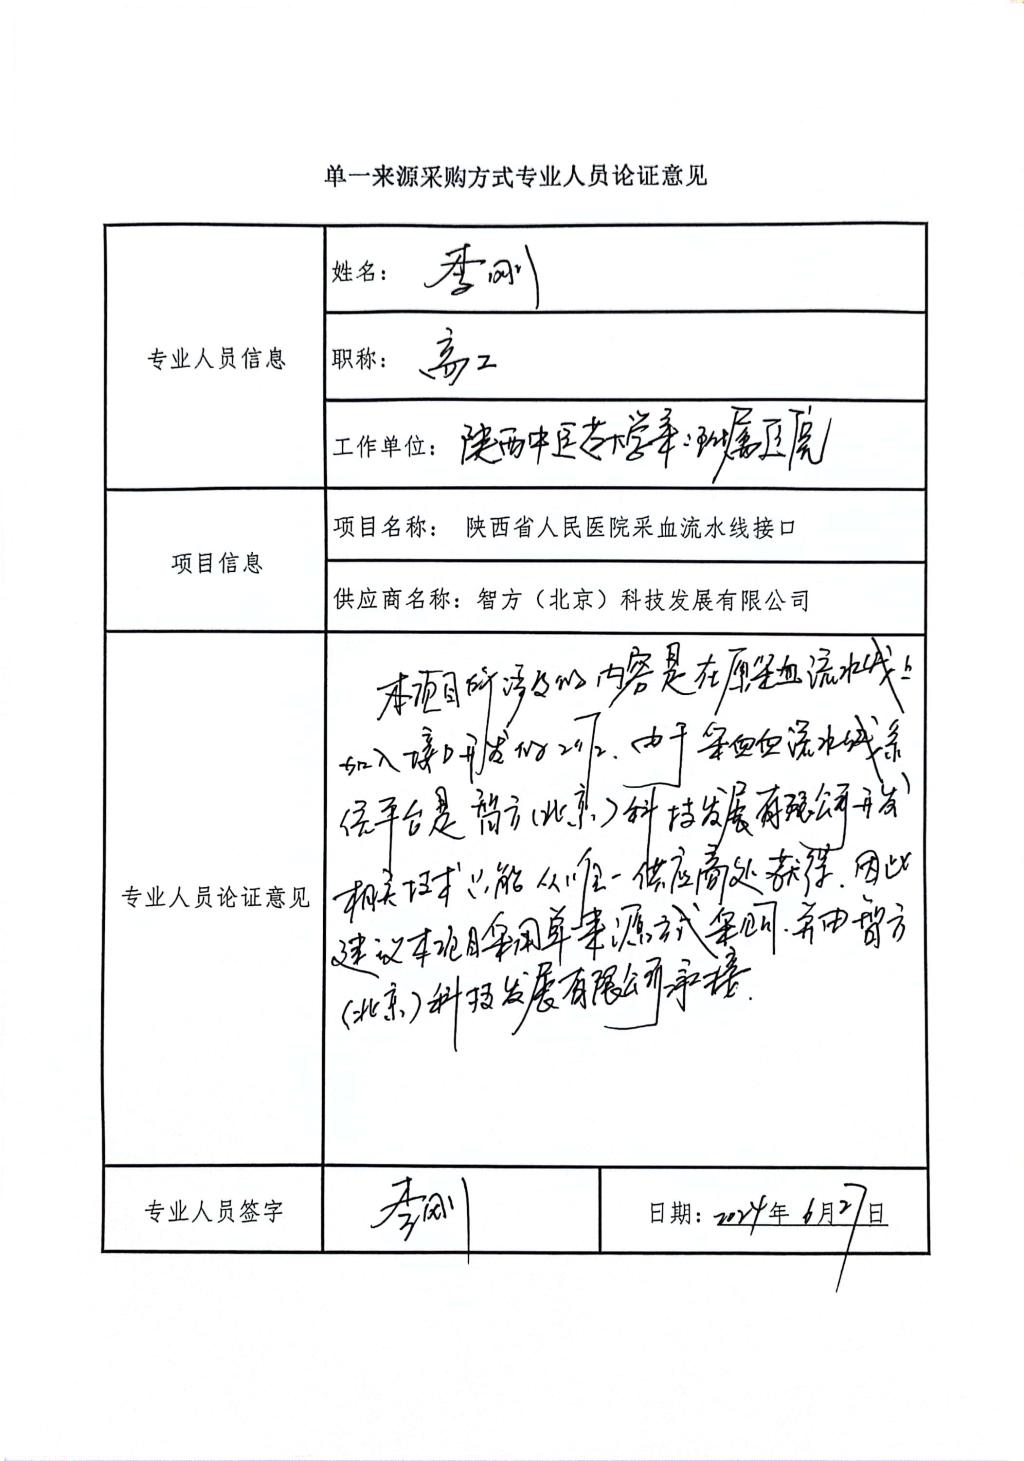 单一来源采购方式专业人员论证意见
专业人员信息
姓名： 李刚
职称： 高工
工作单位： 陕西中医药大学第二附属医院
项目信息
项目名称： 陕西省人民医院采血流水线接口
供应商名称：智方（北京）科技发展有限公司
专业人员论证意见
本项目所涉及的内容是在原采血流水线上
加入接口开发的工作．由于采血流水线系
统平台是智方（北京）科技发展有限公司开发
相关技术只能从唯一供应商处获得．因此
建议本项目采用单一来源方式采购．并由智方
（北京）科技发展有限公司承接．
专业人员签字
李刚
日期：2024年 6月27日